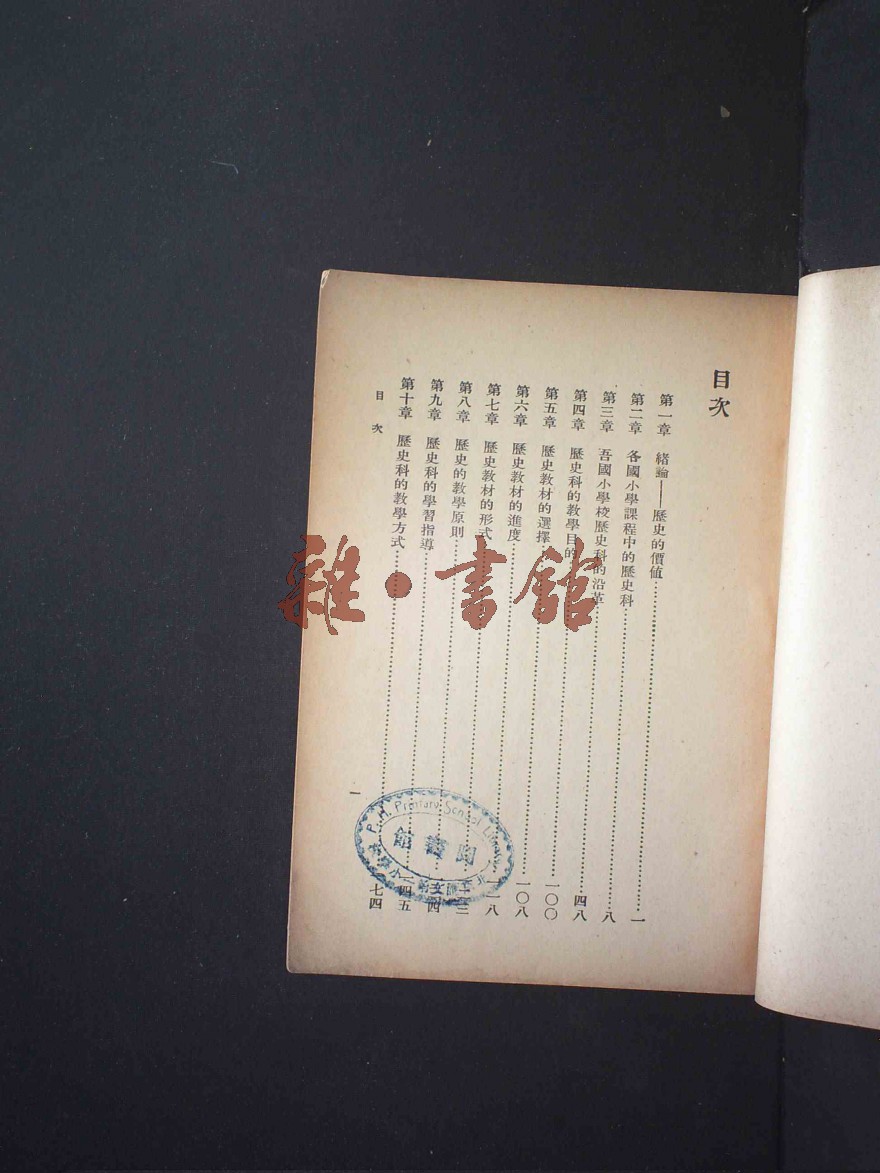 目次
第一章 緒論——歷史的價值……一
第二章 各國小學課程中的歷史科……八
第三章 吾國小學校歷史科的沿革……四八
第四章 歷史科的教學目的……一〇〇
第五章 歷史教材的選擇……一〇八
第六章 歷史教材的進度……一一八
第七章 歷史教材的形式……
第八章 歷史的教學原則……
第九章 歷史科的學習指導……一四五
第十章 歷史科的教學方式……七四
目次
一
P. H. Primary School Library
圖書館
雜·書館